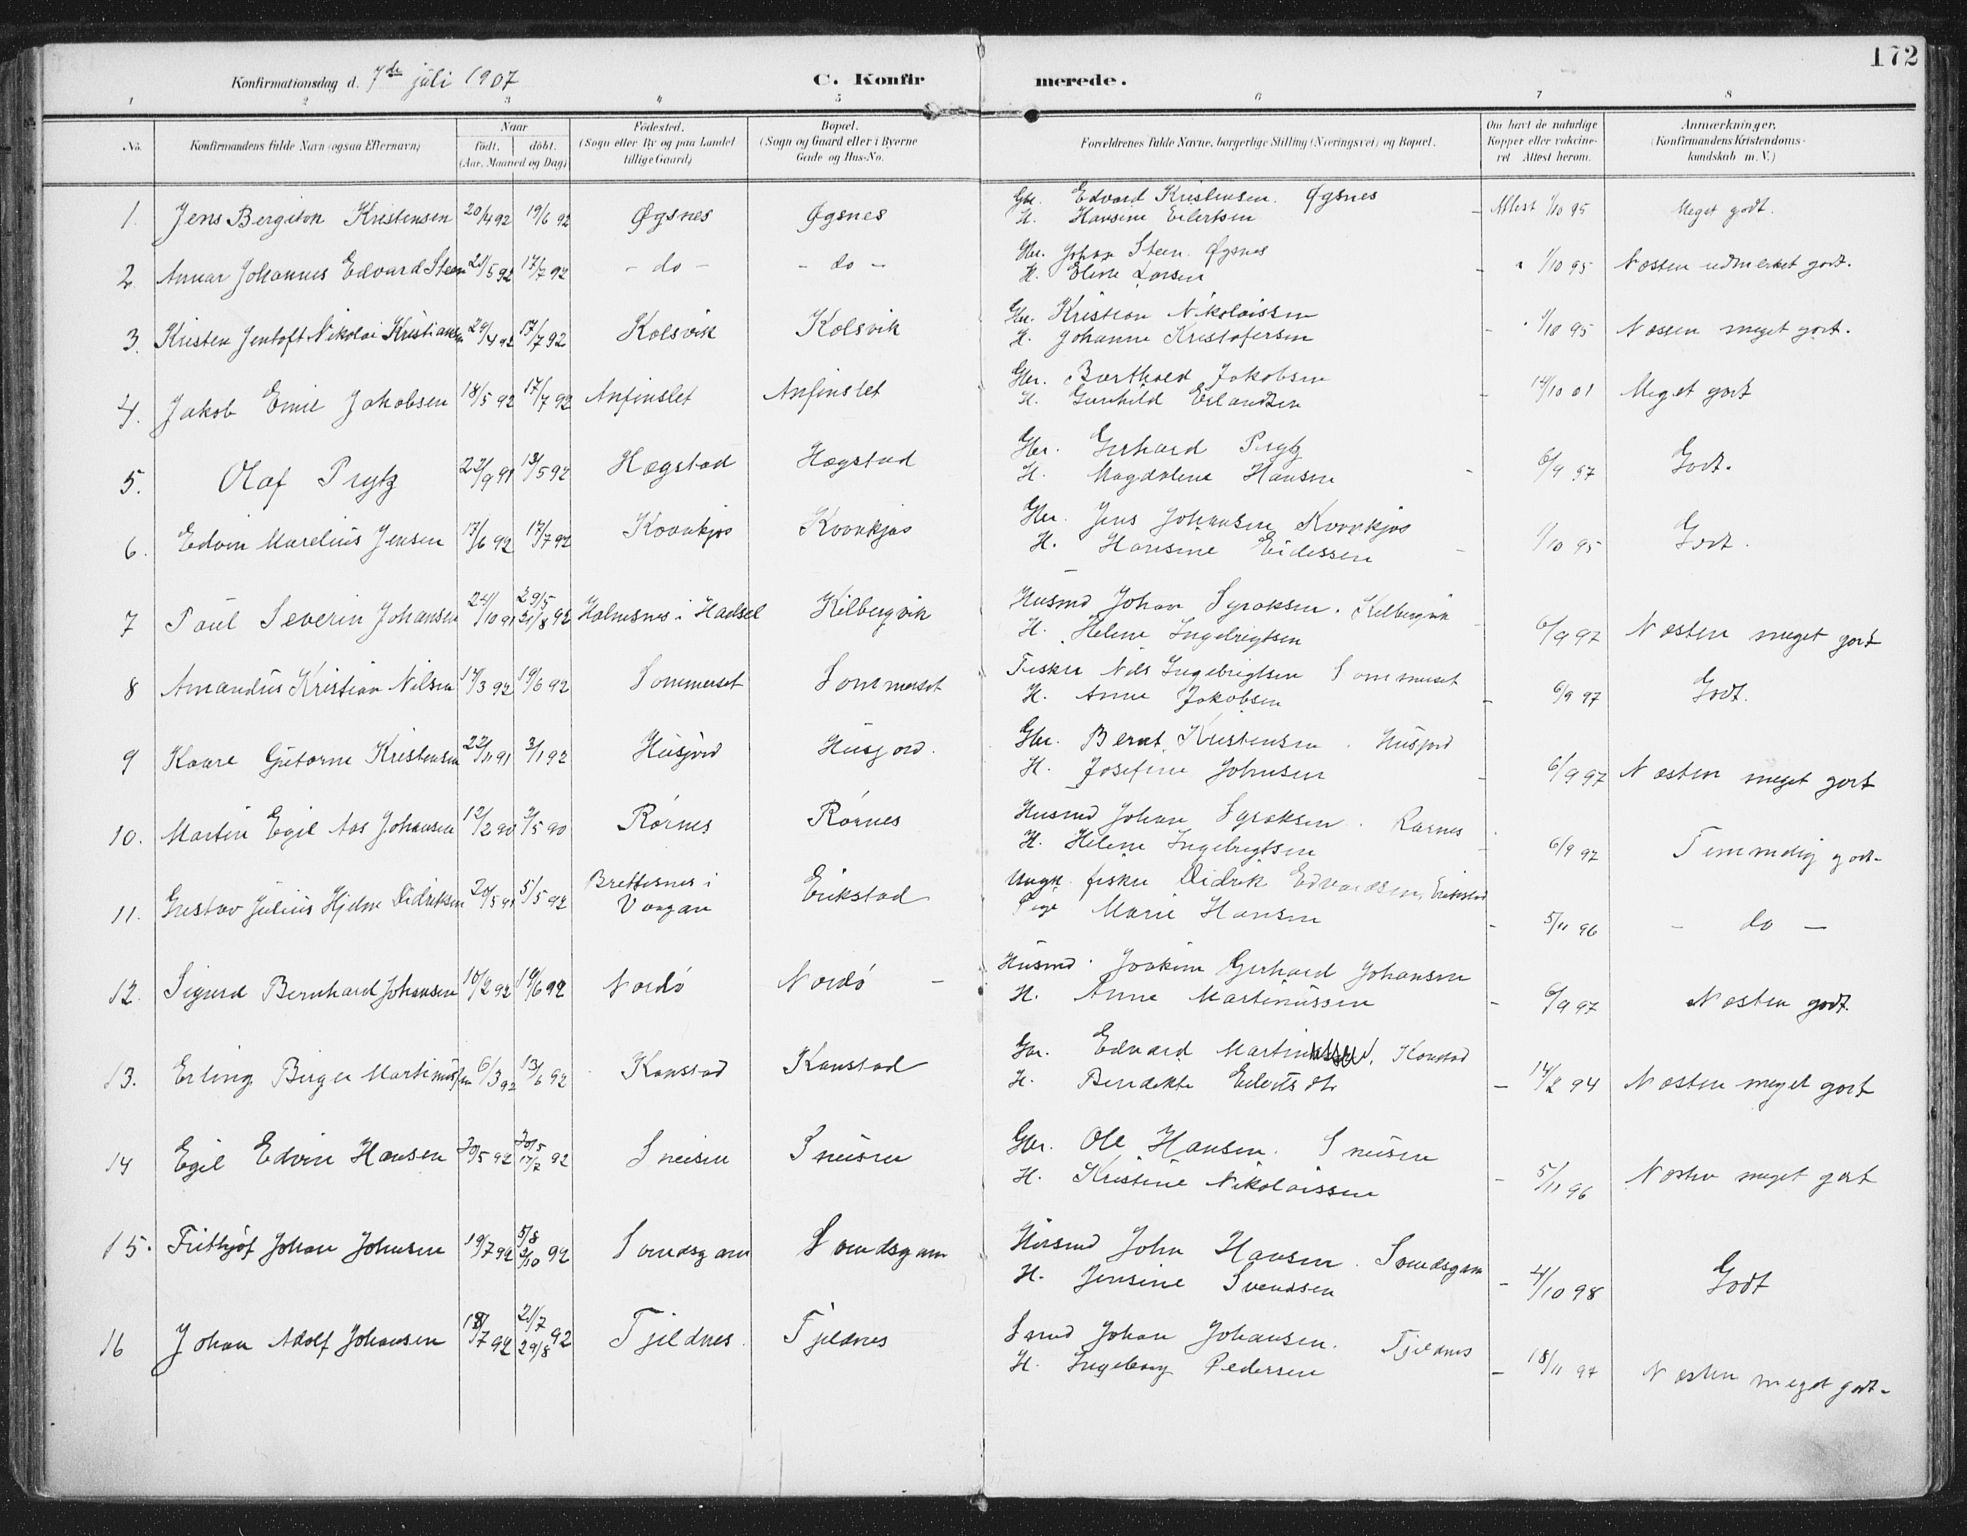 172
Konfirmationsdag d. 7de juli 1907 C. Konfirmerede.
1 2 3 4 5 6 7 8
No. Konfirmandens fulde Navn (ogsaa Efternavn) Naar født. døbt. (Aar, Maaned og Dag) Fødested. (Sogn eller By og paa Landet tillige Gaard) Bopæl. (Sogn og Gaard eller i Byerne Gade og Hus-No. Forældrenes fulde Navne, borgerlige Stilling (Næringsvei) og Bopæl. Om havt de naturlige Kopper eller vakcineret. Attest herom. Anmærkninger. (Konfirmandens Kristendomskundskab m. V.)
1. Jens Bergiton Kristensen 20/4 92 19/6 92 Øgsnes Øgsnes Gbr. Edvard Kristensen. Øgsnes
H. Hansine Eilertsen - Attest 1/10 95 Meget godt.
2. Annar Johannes Edvard Steen 21/5 92 17/7 92 - do - - do - Gbr. Johan Steen. Øgsnes
H. Eline Larsen - " 1/10 95 Næsten udmerket godt.
3. Kristen Jentoft Nikolai Kristiansen 24/4 92 17/7 92 Kolsvik Kolsvik Gbr. Kristian Nikolaissen
H. Johanne Kristofersen - " 1/10 95 Næssen meget godt.
4. Jakob Emil Jakobsen 18/5 92 17/7 92 Anfinslet Anfinslet Gbr. Barthold Jakobsen
H. Gunhild Erlandsen - 14/10 01 Meget godt
5. Olaf Prytz 22/9 91 13/5 92 Hægstad Hægstad Gbr. Gerhard Prytz
H. Magdalene Hansen - 6/9 97 Godt.
6. Edvin Marelius Jensen 17/6 92 17/7 92 Kvankjos Kvankjos Gbr. Jens Johansen Kvankjos
H. Hansine Eidessen - 1/10 95 Godt.
7 Paul Severin Johansen 24/10 91 29/5 21/8 92 Holmsnes i Hadsel Kilbergvik Husmd Johan Syraksen. Kilbergvik
H. Helene Ingebrigtsen - 6/9 97 Næsten meget godt
8 Amandus Kristian Nilsen 14/3 92 19/6 92 Sommerset Sommerset Fisker Nils Ingebrigtsen Sommerset
H. Anne Jakobsen - 6/9 97 Godt.
9 Kaare Gutorne Kristensen 22/11 91 3/1 92 Husjord Husjord. Gbr. Bernt Kristensen. Husjord
H. Josefine Johnsen - 6/9 97 Næsten meget godt
10. Martin Egil Aas Johansen 12/2 90 2/5 90 Rørnes Rørnes Husmd Johan Syraksen. Rørnes
H. Helene Ingebrigtsen - 6/9 97 Temmelig godt-
11. Gustav Julius Hjelm Didriksen 20/5 91 5/5 92 Brettesnes i Vaagan Erikstad Ungk. fisker Didrik Edvardsen, Erikstad
Pige Marie Hansen - 5/11 96 - do -
12. Sigurd Bernhard Johansen 10/2 92 19/6 92 Nordø Nordø - Husmd. Joakim Gerhard Johansen
H. Anne Martinussen - 6/9 97 Næsten godt.
13. Erling Birger Martinussen 6/3 92 13/6 92 Kanstad Kanstad Gbr. Edvard Martinussen, Kanstad
H. Bendikte Eilertsdtr - 14/2 94 Næsten meget godt
14 Egil Edvin Hansen 20/5 92 30/5 17/7 92 Sneisen Sneisen Gbr. Ole Hansen. Sneisen
H. Kristine Nikolaissen - 5/11 96 Næsten meget godt
15. Frithjof Johan Johnsen 19/7 92 5/8 2/10 92 Sandsgam Sandsgam Husmd John Hansen. Sandsgam
H. Jensine Svendsen - 4/10 98 Godt
16 Johan Adolf Johansen 18/7 92 21/7 29/8 92 Tjeldnes. Tjeldnes Smd Johan Johansen. Tjeldnes
H. Ingeborg Pedersen - 18/11 97 Næsten meget godt-